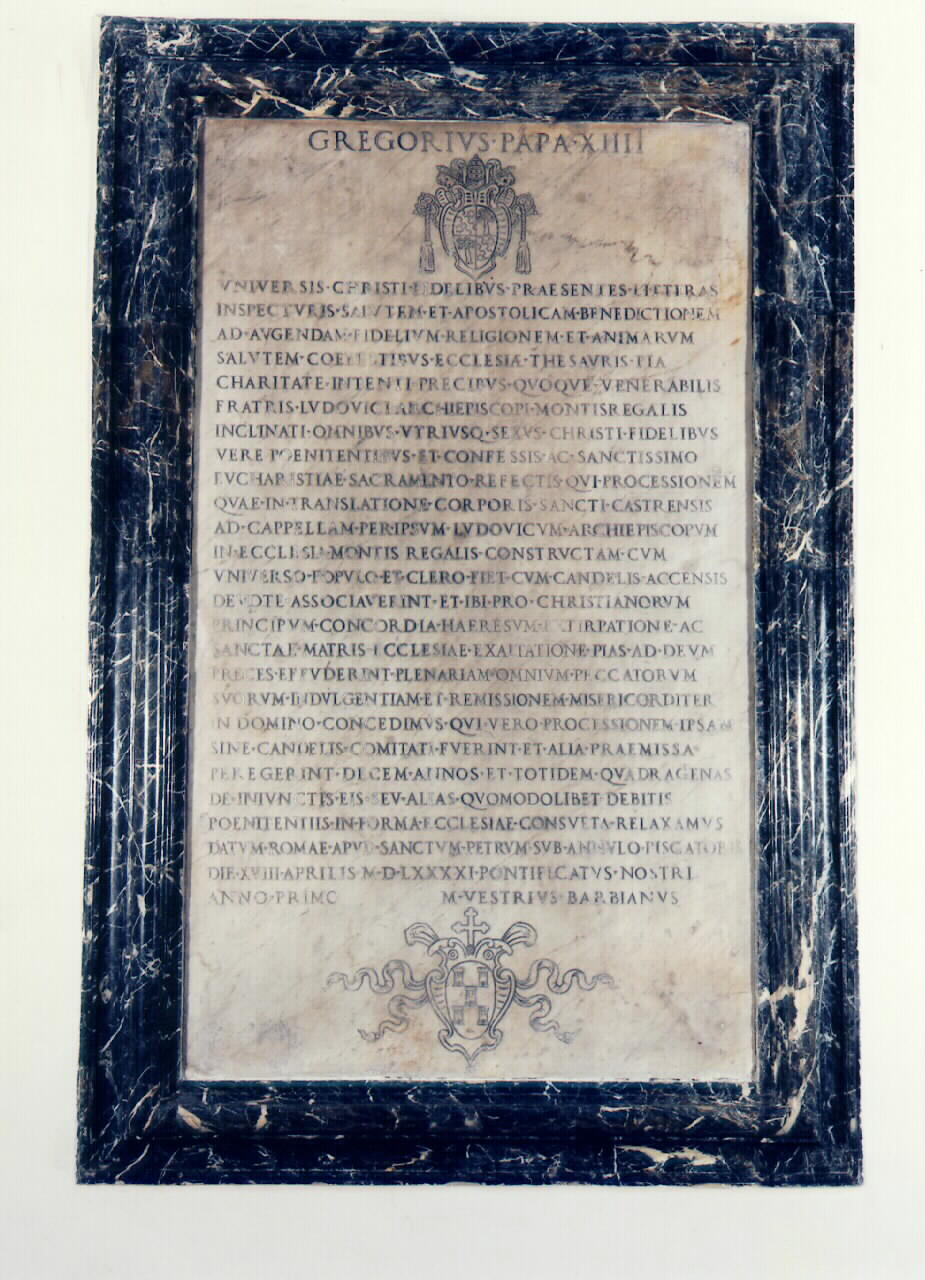 GREGORIVS·PAPA·XIIII
VNIVERSIS·CHRISTI·FIDELIBVS·PRAESENTES·LITTERAS
INSPECTVRIS·SALVTEM·ET·APOSTOLICAM·BENEDICTIONEM
AD·AVGENDAM·FIDELIVM·RELIGIONEM·ET·ANIMARVM
SALVTEM·COELESTIBVS·ECCLESIÆ·THESAVRIS·PIA
CHARITATE·INTENTI·PRECIBVS·QVOQVE·VENERABILIS
FRATRIS·LVDOVICI·ARCHIEPISCOPI·MONTISREGALIS
INCLINATI·OMNIBVS·VTRIVSQ·SEXVS·CHRISTI·FIDELIBVS
VERE POENITENTIBVS·ET·CONFESSIS·AC·SANCTISSIMO
EVCHARISTIAE·SACRAMENTO·REFECTIS·QVI·PROCESSIONEM
QVAE·IN·TRANSLATIONE·CORPORIS·SANCTI·CASTRENSIS
AD·CAPPELLAM·PER·IPSVM·LVDOVICVM·ARCHIEPISCOPVM
IN·ECCLESIA·MONTIS REGALIS·CONSTRVCTAM·CVM
VNIVERSO·POPVLO·ET·CLERO·FIET·CVM·CANDELIS·ACCENSIS
DEVOTE ASSOCIAVERINT·ET·IBI·PRO·CHRISTIANORVM
PRINCIPVM·CONCORDIA·HAERESVM·EXTIRPATIONE·AC
SANCTAE·MATRIS·ECCLESIAE·EXALTATIONE·PIAS·AD·DEVM
PRECES·EFFVDERINT·PLENARIAM·OMNIVM·PECCATORVM
SVORVM·INDVLGENTIAM·ET·REMISSIONEM·MISERICORDITER
IN DOMINO·CONCEDIMVS·QVI·VERO·PROCESSIONEM·IPSAM
SINE·CANDELIS·COMITATI·FVERINT·ET·ALIA·PRAEMISSA
PEREGERINT·DECEM·ANNOS·ET·TOTIDEM·QVADRAGENAS
DE·INIVNCTIS·EIS·SEV·ALIAS·QVOMODOLIBET·DEBITIS
POENITENTIIS·IN·FORMA·ECCLESIAE·CONSVETA·RELAXAMVS
DATVM·ROMAE·APVD·SANCTVM·PETRVM·SVB·ANNVLO·PISCATORIS
DIE·XVIII·APRILIS M·D·LXXXXI·PONTIFICATVS·NOSTRI
ANNO·PRIMO M·VESTRIVS·BARBIANVS